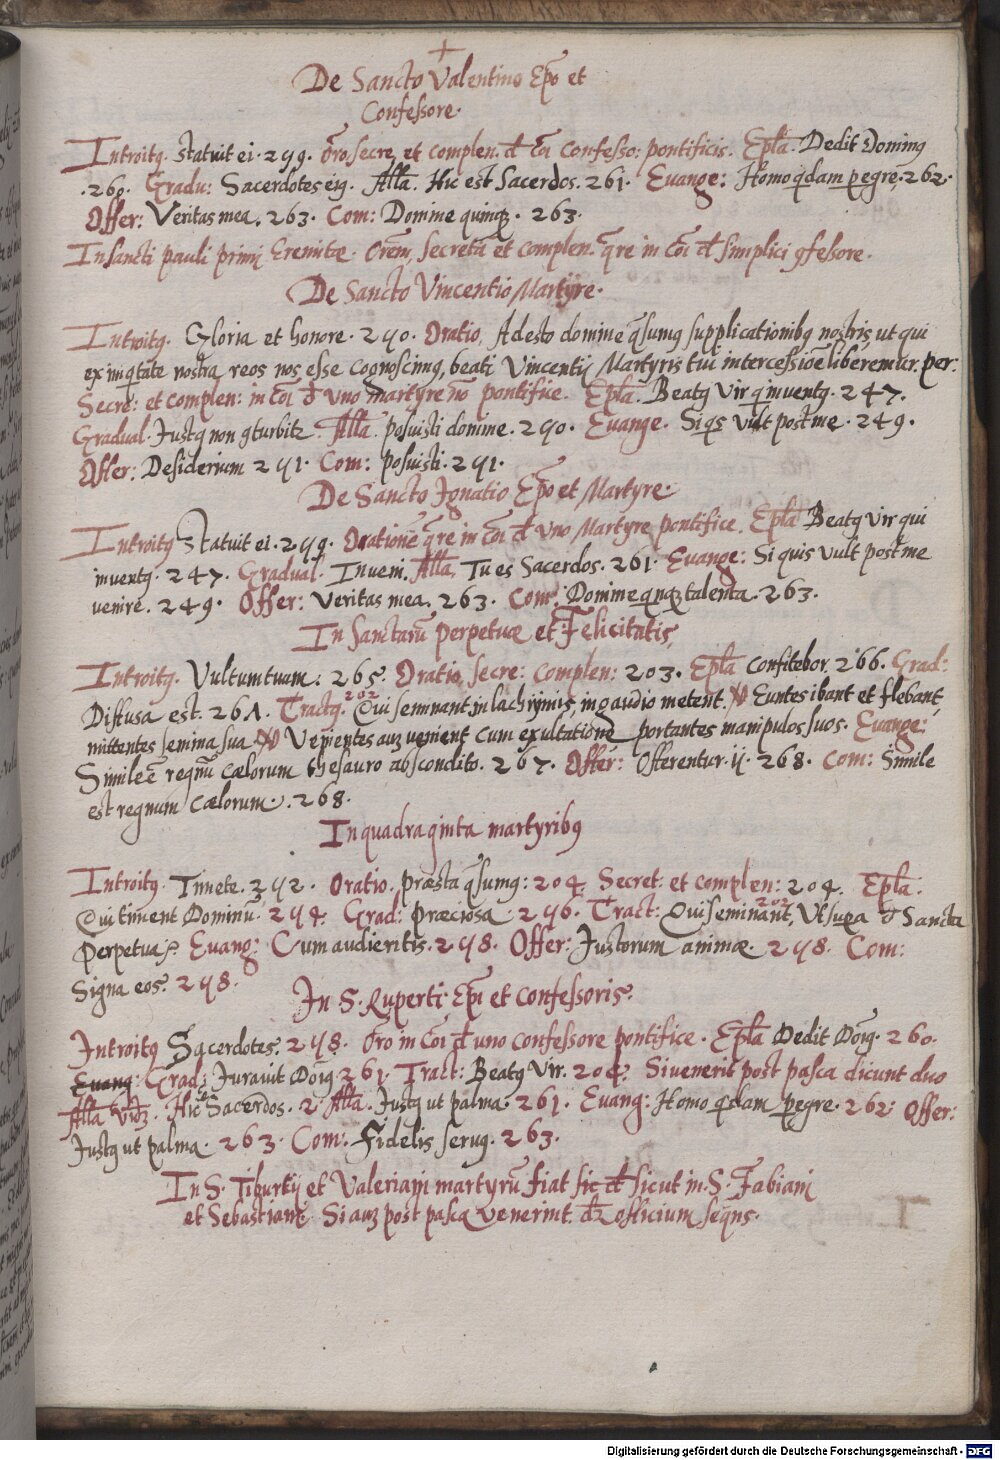 +
De Sancto Valentino Epo et
Confessore.
Introitq. Statuit ei. 299. Oro. secre, et complen. d coi confesso: pontificis. Epla. Dedit Dominq
.260. Gradu: Sacerdotes eiq. Alla. Hic est sacerdos. 261. Euange: Homo qdam pegre. 262.
Offer: Veritas mea. 263. Com: Domine quinqz. 263.
In sancti pauli primi Eremitæ. Orem, secreta et complen. qre in coi d simplici gfessore.
De Sancto Vincentio Martÿre.
Introitq. Gloria et honore. 290. Oratio, Adesto domine qsumq supplicationibq nostris, ut qui
ex iniqtate nostra reos nos esse cognoscimq, beati Vincentij Martyris tui intercessioe liberemur. per:
Secre: et complen: in coi d uno martyre no pontifice. Epla. Beatq Vir q inventq. 247.
Gradual. Justq non gturbitz. Alla. posuisti domine. 290. Euange. Si qs vult post me. 249.
Offer: Desiderium 291. Com: posuisti. 291.
De Sancto Ignatio Epo et Martyre.
Introitq Statuit ei. 299. Oratione qre in coi d uno Martyre pontifice. Epla Beatq Vir qui
inventq. 247. Gradual. Inveni. Alla. Tu es Sacerdos. 261. Euange: Si quis vult post me
venire. 249. Offer: Veritas mea. 263. Com: Domine qnqz talenta. 263.
In Sanctaru perpetuæ et Felicitatis,
Introitq. Vultum tuum. 265. Oratio, secre: complen: 203. Epla Confitebor. 266. Grad:
Diffusa est. 261. Tractq. 202 Qui seminant in lachrijmis, in gaudio metent. V Euntes ibant et flebant,
mittentes semina sua V Venientes auz venient cum exultatione portantes manipulos suos. Euange:
Simile e regnu cælorum thesauro abscondito. 267. Offer: Offerentur. ij. 268. Com: Simile
est regnum cælorum. 268.
In quadraginta martyribq
Introitq. Timete. 292. Oratio. præsta qsumq: 204. Secret. et complen: 204. Epla.
Qui timent Dominu. 294. Grad: Præciosa. 296. Tract: Qui seminant, 202 Ut supra d Sancta
Perpetua. Euang: Cum audieritis. 298. Offer: Justorum animæ. 298. Com:
Signa eos. 298.
In S. Ruperti Epi et confessoris.
Introitq Sacerdotes. 298. Oro in coi d uno confessore pontifice. Epla Dedit Doiq. 260.
Euang: Grad: Juravit Doiq 261. Tract: Beatq Vir. 204. Si venerit post pasca dicunt duo
Alla Hic est Sacerdos. 2. Alla. Justq ut palma. 261. Euang: Homo qdam pegre. 262. Offer:
Justq ut palma. 263. Com: Fidelis servq. 263.
In S. Tiburtij et Valeriani martyru fiat sic d sicut in S. Fabiani
et Sebastiani. Si auz post pasca venerint. dr officium seqns.
Digitalisierung gefördert durch die Deutsche Forschungsgemeinschaft - DFG